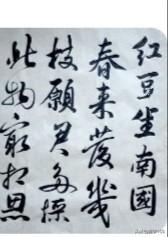 紅豆生南國
春来發幾
枝願君多採
此物最相思